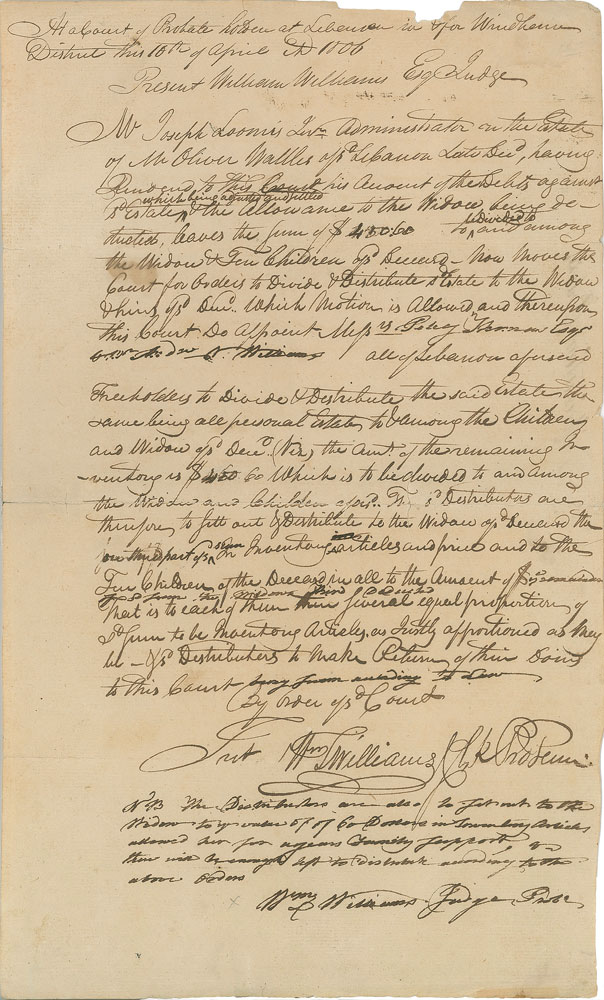 At a Court of Probate holden at Lebanon in & for Windham
District this 10th of April AD 1806
Present William Williams Esqr Judge
Mr Joseph Loomis Administrator on the Estate
of Mr Oliver Wattles of sd Lebanon Late Decd, having
Rendered to this Court his Amount of the Debts against
which being adjusted and settled
sd Estate & the Allowance to the Widow being de-
& divided to
ducted, leaves the sum of $ 60 to, and among
the Widow & Ten Children of sd Deceasd - Now Moves the
Court for Orders to Divide & Distribute sd Estate to the Widow
& heirs of sd Decd. Which Motion is Allowed and thereupon
this Court Do Appoint Messrs Esqr
Williams all of Lebanon aforesaid
Freeholders to Divide & Distribute the said Estate, the
same being all personal Estate to & among the Children
and Widow of sd Decd (Viz) the Amt. of the remaining In-
-ventory is $ 60 Which is to be divided to and among
the Widow and Children aforsd. sd Distributors are
therefore to sett out & Distribute to the Widow of sd Deceased the
one third part of sd sum in Inventory articles and price and to the
Ten Children of the Deceasd in all to the Amount of $
that is to each of them their several equal proportion of
sd sum to be Inventory Articles, as Justly apportioned as May
be - & sd Distributers to Make Return of their Doins
to this Court according to Law
By order of sd Court
Test Wm Williams Clk
N.B The Distributors are also to set out to the
Widow to ye value of 60 Dollars in Inventory Articles
allowed her for a years Family support, &
then will enough left to distribute according to the
above Orders
Wm Williams Judge Probe